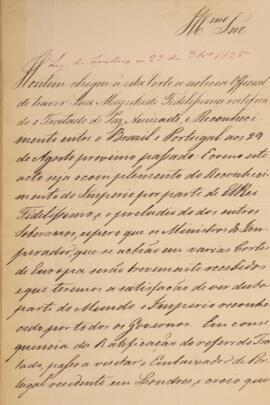 Illmo Snr
Leg. de Londres em 22 de 9bro 1825
Hontem chegou á esta Corte a noticia Official
de haver Sua Magestade Fidelissima ratifica
do o Tratado de Paz, Amizade, e Reconheci
mento entre o Brazil e Portugal aos 29
de Agosto proximo passado. E como este
acto seja o complemento do Reconheci
mento do Imperio por parte de ElRei
Fidelissimo, e o preludio do dos outros
Soberanos, espero que os Ministros do Im
perador, que se achão em varias Cortes
da Europa serão brevemente recebidos
e que teremos a satisfação de ver desta
parte do Mundo o Imperio reconhe
cido por todos os Governos. Em conse
quencia da Ratificação do referido Tra
tado, passo a visitar o Embaixador de Por
tugal residente em Londres, e creio que